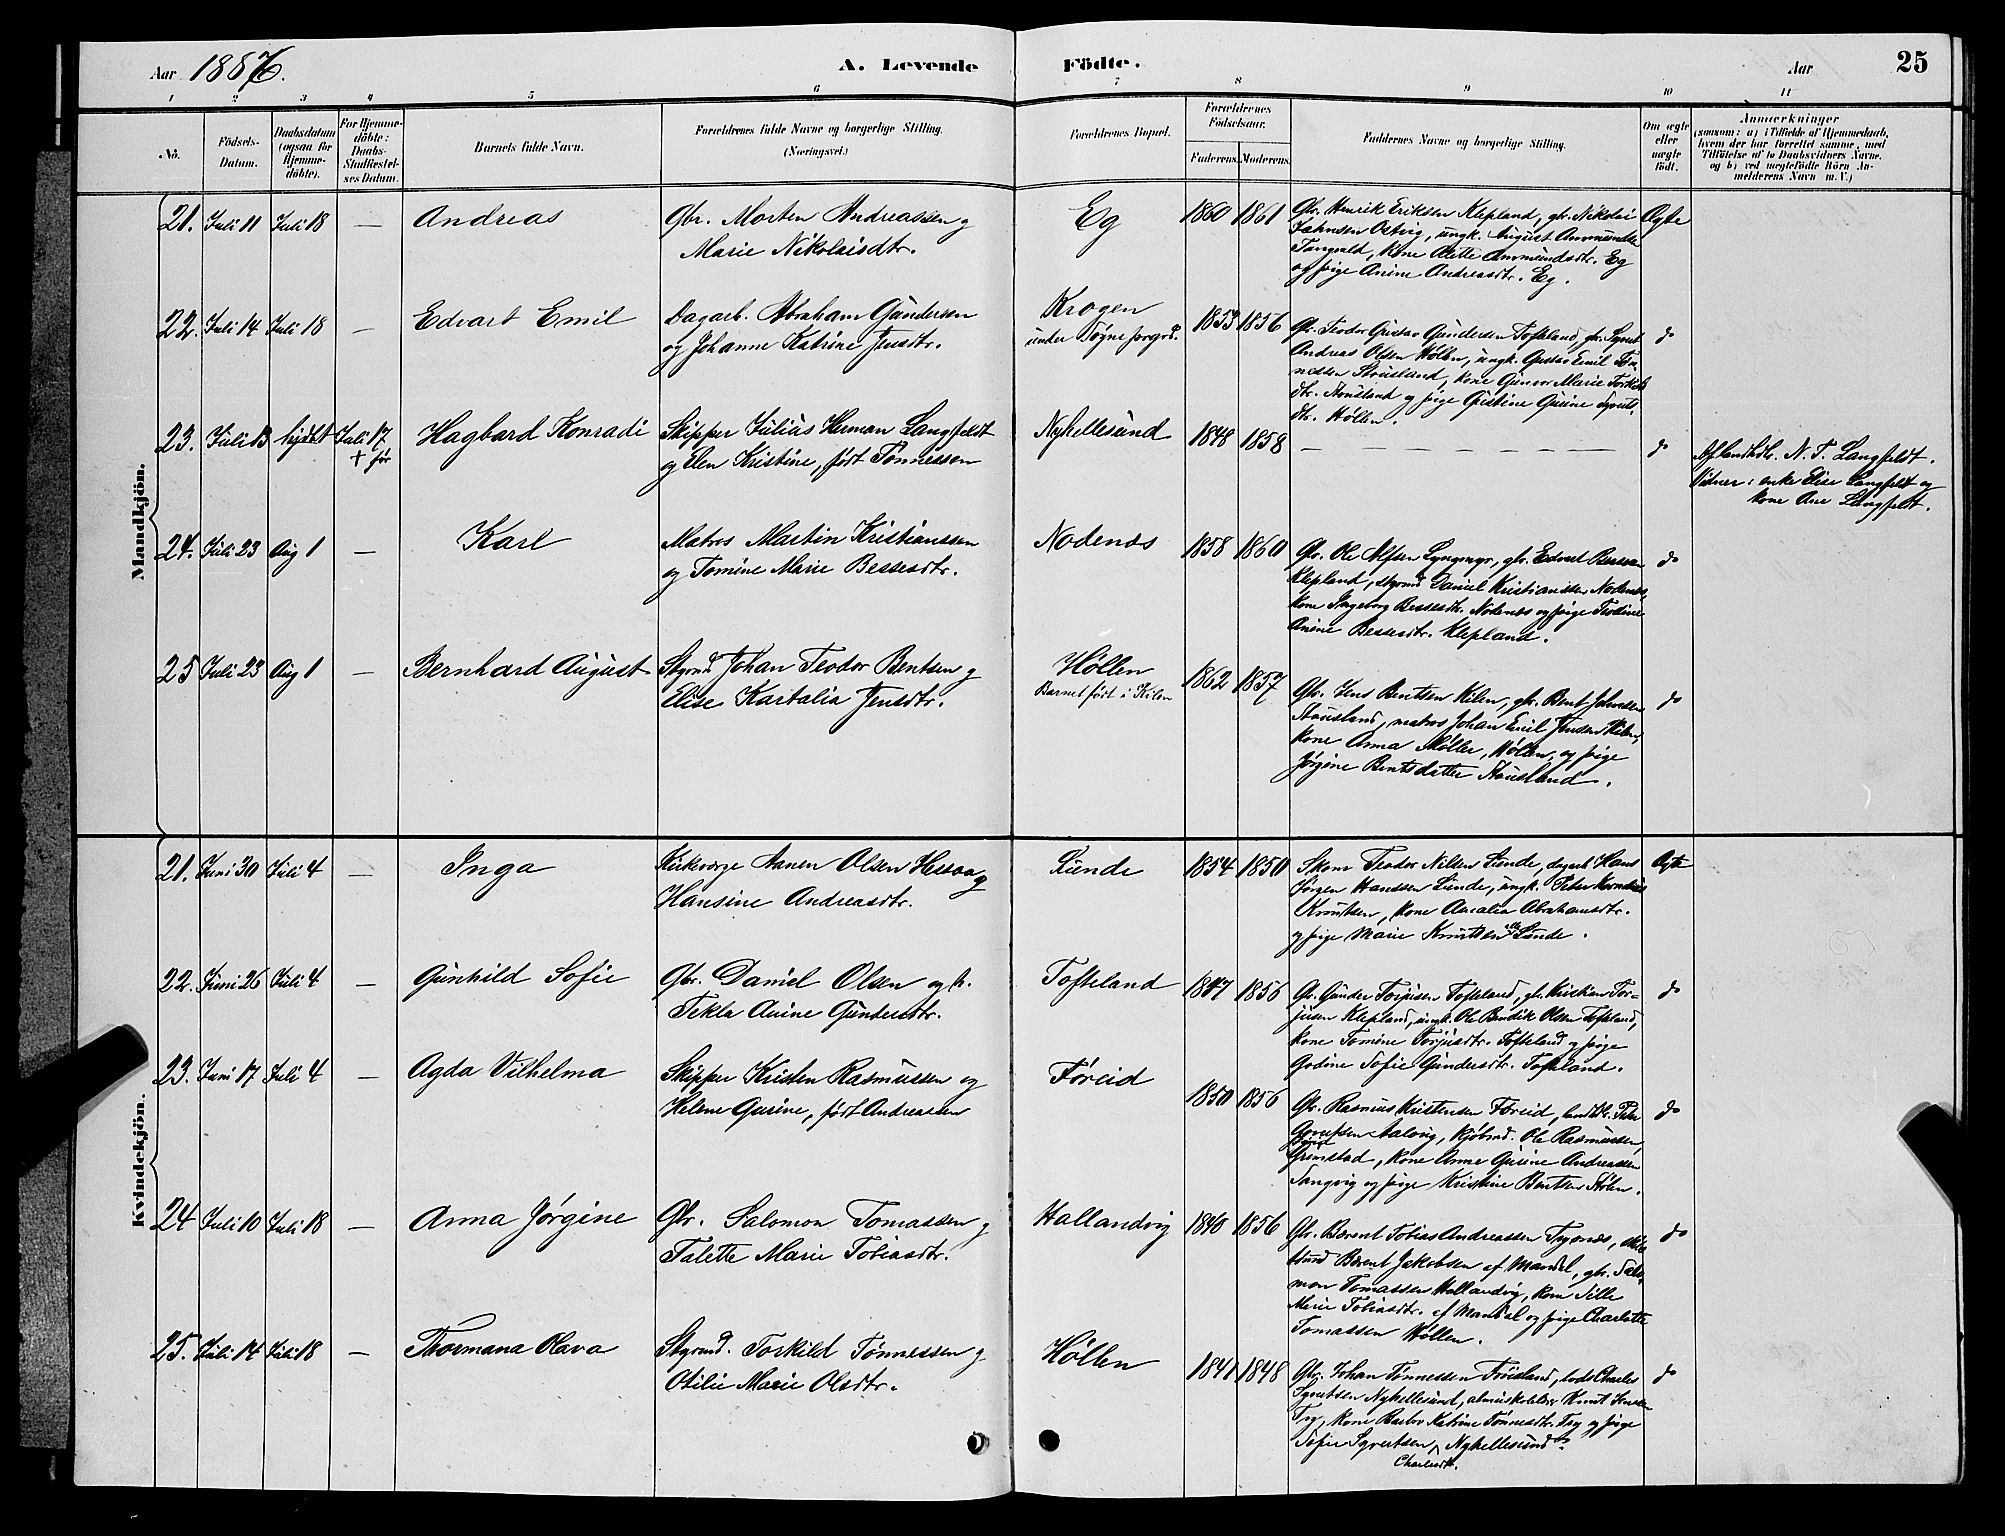 Aar 1886.
A. Levende Födte.
Aar
25
1 2 3 4 5 6 7 8 9 10 11
No.
Födsels-Datum.
Daabsdatum (ogsaa for Hjemme-döbte).
For Hjemme-döbte: Daabs-Stadfæstel-ses Datum.
Barnets fulde Navn.
Forældrenes fulde Navne og borgerlige Stilling. (Næringsvei.)
Forældrenes Bopæl.
Forældrenes Födselsaar.
Faderens. Moderens.
Faddernes Navne og borgerlige Stilling.
Om ægte eller uægte födt.
Anmærkninger
(saasom: a) i Tilfælde af Hjemmedaab, hvem der har forrettet samme, med Tilföielse af to Daabsvidners Navne, og b) ved uægtefödte Börn An-melderens Navn m. V.)
Mandkjön.
21. Juli 11 Juli 18 — Andreas
Gbr. Morten Andreassen og
Marie Nikolaisdtr.
Eg 1860 1861
Gbr. Henrik Eriksen Klepland, gbr. Nikolai
Jahnsen Østvig, ungk. August Ammundsen
Tangvald, kone Alette Ammundsdtr. Eg
og pige Anine Andreasdtr. Eg.
Ægte
22. Juli 14 Juli 18 — Edvart Emil
Dagarb. Abraham Gundersen
og Johanne Katrine Jensdtr.
Krogen
under Tøgne prgrd.
1853 1856
Gbr. Teodor Gustav Gundersen Tofteland, gbr. Syvert
Andreas Olsen Høllen, ungk. Gustav Emil Tøn-
nessen Stausland, kone Gunvor Marie Torkels
dtr. Stausland og pige Gustine Gurine Syverts
dtr. Høllen.
do
23. Juli 13 hjdbt Juli 17 + før Hagbard Konradi
Skipper Julius Herman Langfeldt
og Elen Kristine, født Tønnessen
Nyhellesund 1848 1858 — — — — — — do
Aflandhdl. N. T. Langfeldt.
Vidner: enke Elise Langfeldt og
kone Ane Langfeldt.
24. Juli 23 Aug 1 — Karl
Matros Martin Kristianssen
og Tomine Marie Bessesdtr.
Nodenæs 1858 1860
Gbr. Ole Alfsen Lyngmyr, gbr. Edvart Bessesen
Klepland, styrmd Daniel Kristianssen Nodenæs,
kone Ingeborg Bessesdtr. Nodenæs og pige Teodine
Anine Bessesdtr. Klepland.
do
25 Juli 23 Aug 1 — Bernhard August
Styrmd Johan Teodor Bentsen og
Elise Kartalia Jensdtr.
Høllen
Barnet født i Kilen
1862 1857
Gbr. Jens Bentsen Kilen, gbr. Bent Johnsen
Stausland, matros Johan Emil Jensen Kilen,
kone Anna Møller, Høllen, og pige
Jørgine Bentsdatter Stausland.
do
Kvindekjön.
21. Juni 30 Juli 4 — Inga
Kirkeværge Aanen Olsen Hessaa og
Hansine Andreasdtr.
Lunde 1854 1850
Skom Teodor Nilsen Lunde, dagarb Hans
Jørgen Hanssen Lunde, ungk. Peter Kornelius
Knutsen, kone Amalia Abrahamsdtr.
og pige Marie Knutsen alle Lunde.
Ægte
22. Juni 26 Juli 4 — Gunhild Sofie
Gbr. Daniel Olsen og h.
Tekla Anine Gundersdtr.
Tofteland 1847 1856
Gbr. Gunder Torjusen Tofteland, gbr. Kristian Tor-
jusen Klepland, ungk. Ole Bendik Olsen Tofteland,
kone Tomine Torjusdtr. Tofteland og pige
Godine Sofie Gundersdtr. Tofteland.
do
23. Juni 17 Juli 4 — Agda Vilhelma
Skipper Kristen Rasmussen og
Helene Gurine, født Andreassen
Føreid 1850 1856
Gbr. Rasmus Kristensen Føreid, landhdl. Peter
Govertsen Aalvig, kjøbmd. Ole Rasmussen,
Grimstad, kone Anne Gurine Andreassen
Langvig og pige Kristine Bentsen Stølen.
do
24 Juli 10 Juli 18 — Anna Jørgine
Gbr. Salomon Tomassen og
Talette Marie Tobiasdtr.
Hallandvig 1840 1856
Gbr. Berent Tobias Andreassen Trysnæs,
Berent Jakobsen af Mandal, gbr. Salo-
mon Tomassen Hallandvig, kone Sille
Marie Tobiasdtr. af Mandal og pige Charlotte
Tomassen Høllen.
do
25. Juli 14 Juli 18 — Thormana Olava
Styrmd. Torkild Tønnessen og
Otilie Marie Olsdtr.
Høllen 1841 1848
Gbr. Johan Tønnessen Frøisland, lods Charles
Syvertsen Nyhellesund, almuskolelærer Knut Jensen
Try, kone Barbro Katrine Tønnesdtr. Try og pige
Sofie Syvertsen Charlesdtr. Nyhellesund.
do